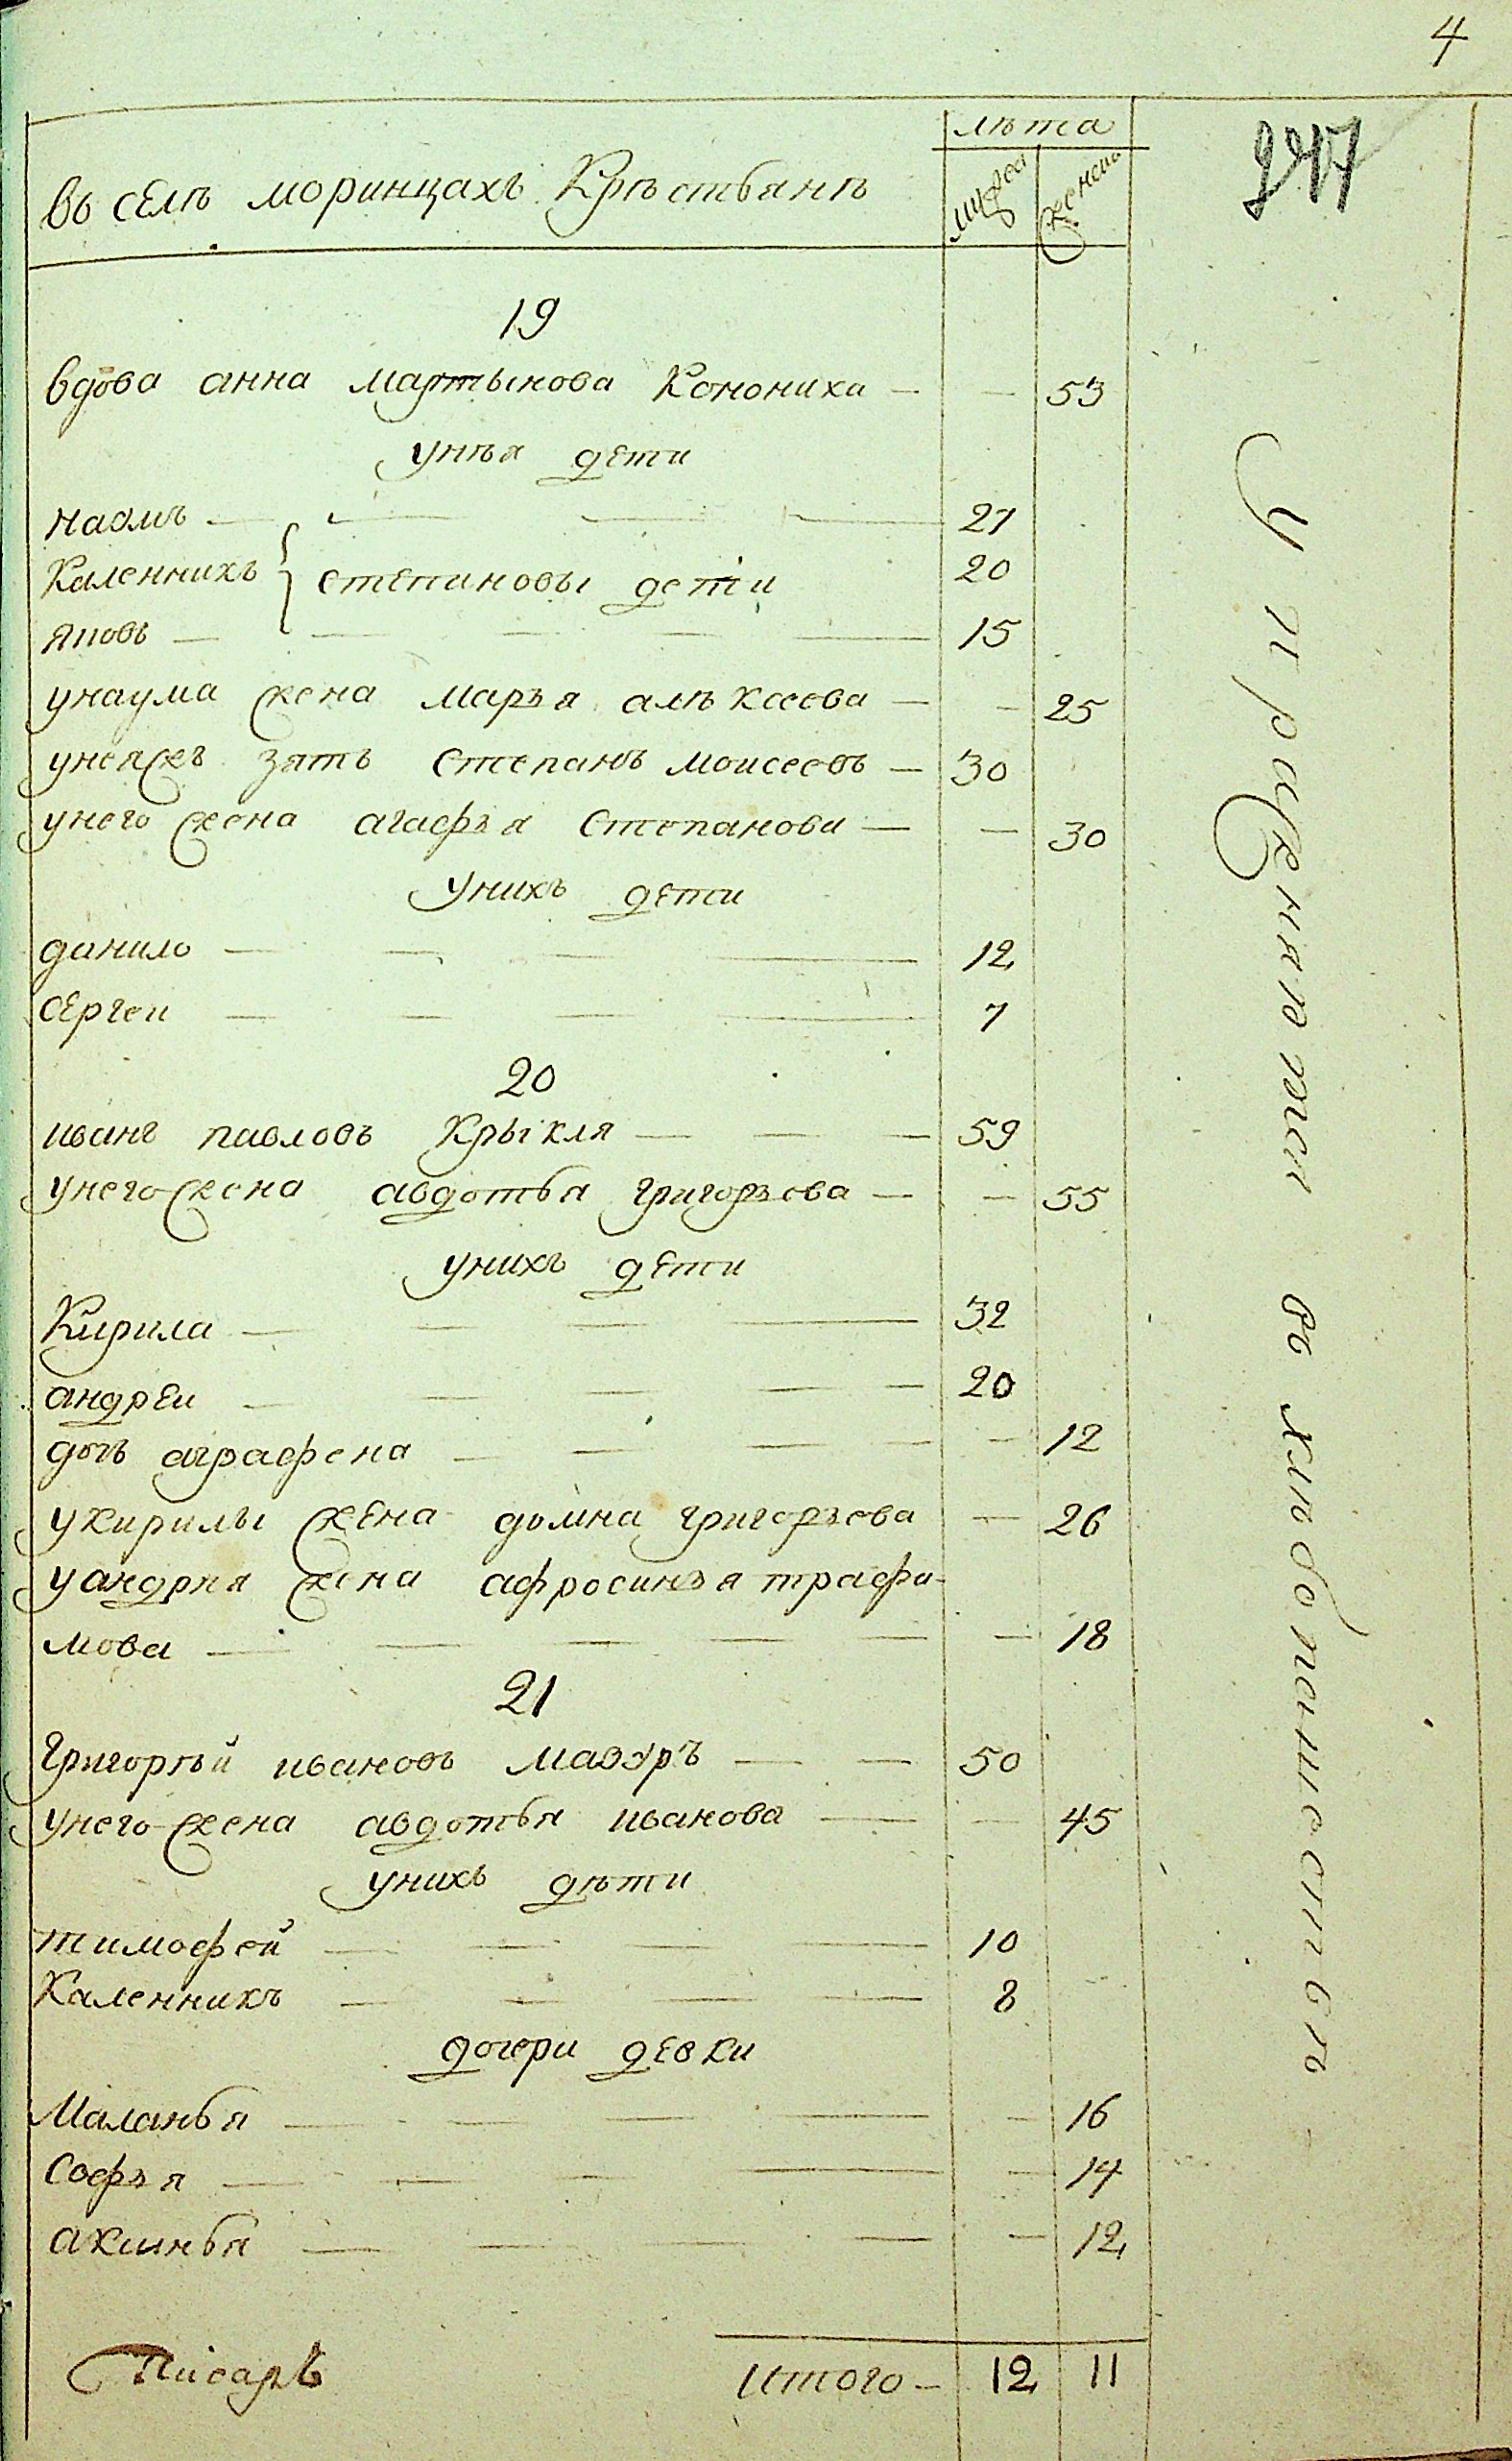 4
247
лѣта
въ селѣ моринцахъ Крѣстьянѣ
мужеска женска
19
вдова анна мартынова Конониха — — 53
унѣя дети
наумъ — 27
Каленникъ степановы дети 20
яковъ — 15
унаума жена марья алѣксеева — — 25
унеяжъ зять степанъ моисеевъ — 30
унего жена агафья степанова — — 30
унихъ дети
данило — 12
сергеи — 7
20
иванъ павловъ Крыкля — 59
унего жена авдотья григорьева — — 55
унихъ дети
Кирила — 32
андреи — 20
дочь аграфена — — 12
укирилы жена домна григорьева — 26
уандрѣя жена афросинья трафи-
мова — — 18
21
Григорѣй ивановъ мазуръ — 50
унего жена авдотья иванова — — 45
унихъ дѣти
тимофей — 10
Каленникъ — 8
дочери девки
Маланья — — 16
Софья — — 14
аксинья — — 12
итого — 12 11
Писарь
упражняется въ хлѣбопашествѣ